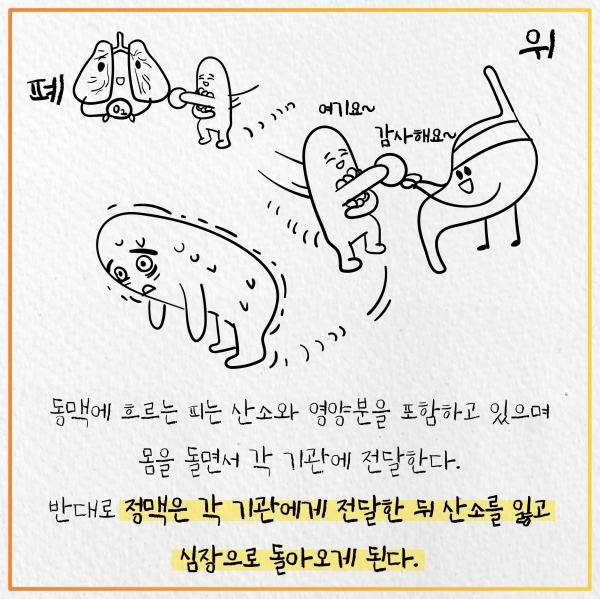 위
폐
O₂
여기요~
감사해요~
동맥에 흐르는 피는 산소와 영양분을 포함하고 있으며
몸을 돌면서 각 기관에 전달한다.
반대로 정맥은 각 기관에게 전달한 뒤 산소를 잃고
심장으로 돌아오게 된다.